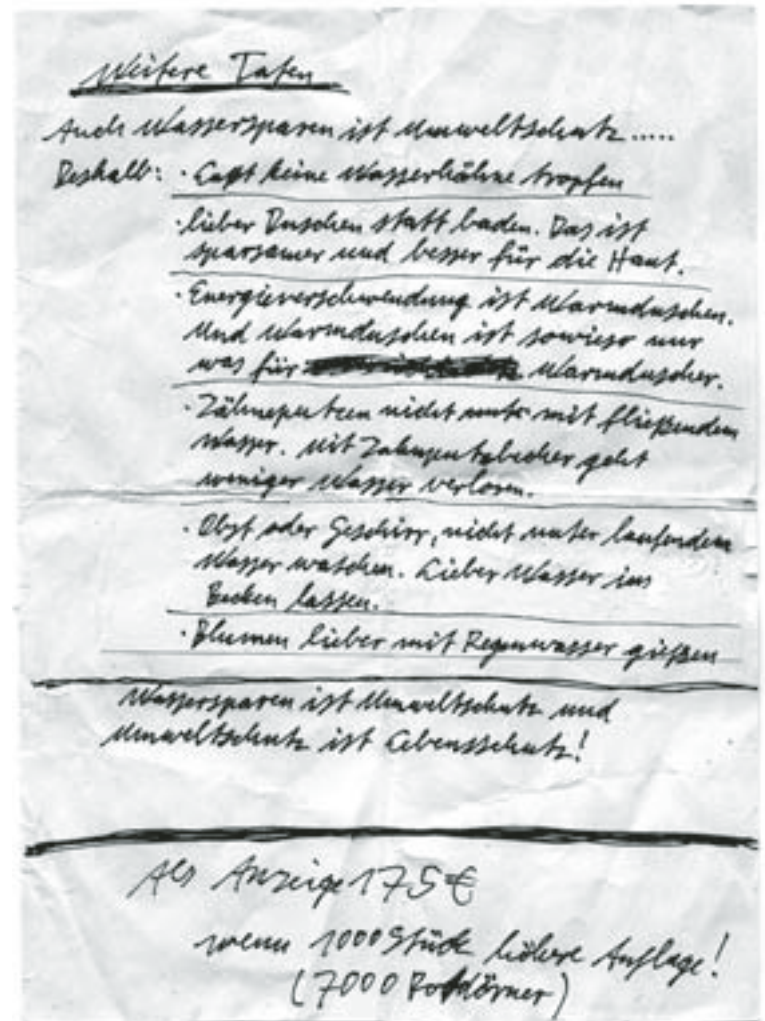 Weitere Taten
Auch Wassersparen ist Umweltschutz.....
Deshalb: · Lasst keine Wasserhähne tropfen
· lieber Duschen statt baden. Das ist
sparsamer und besser für die Haut.
· Energieverschwendung ist Warmduschen.
Und Warmduschen ist sowieso nur
was für Warmduscher.
· Zähneputzen nicht mit fließendem
Wasser. Mit Zahnputzbecher geht
weniger Wasser verloren.
· Obst oder Geschirr, nicht unter laufendem
Wasser waschen. Lieber Wasser ins
Becken lassen.
· Blumen lieber mit Regenwasser gießen
Wassersparen ist Umweltschutz und
Umweltschutz ist Lebensschutz!
Als Anzeige 175€
wenn 1000 Stück höhere Auflage!
(7000